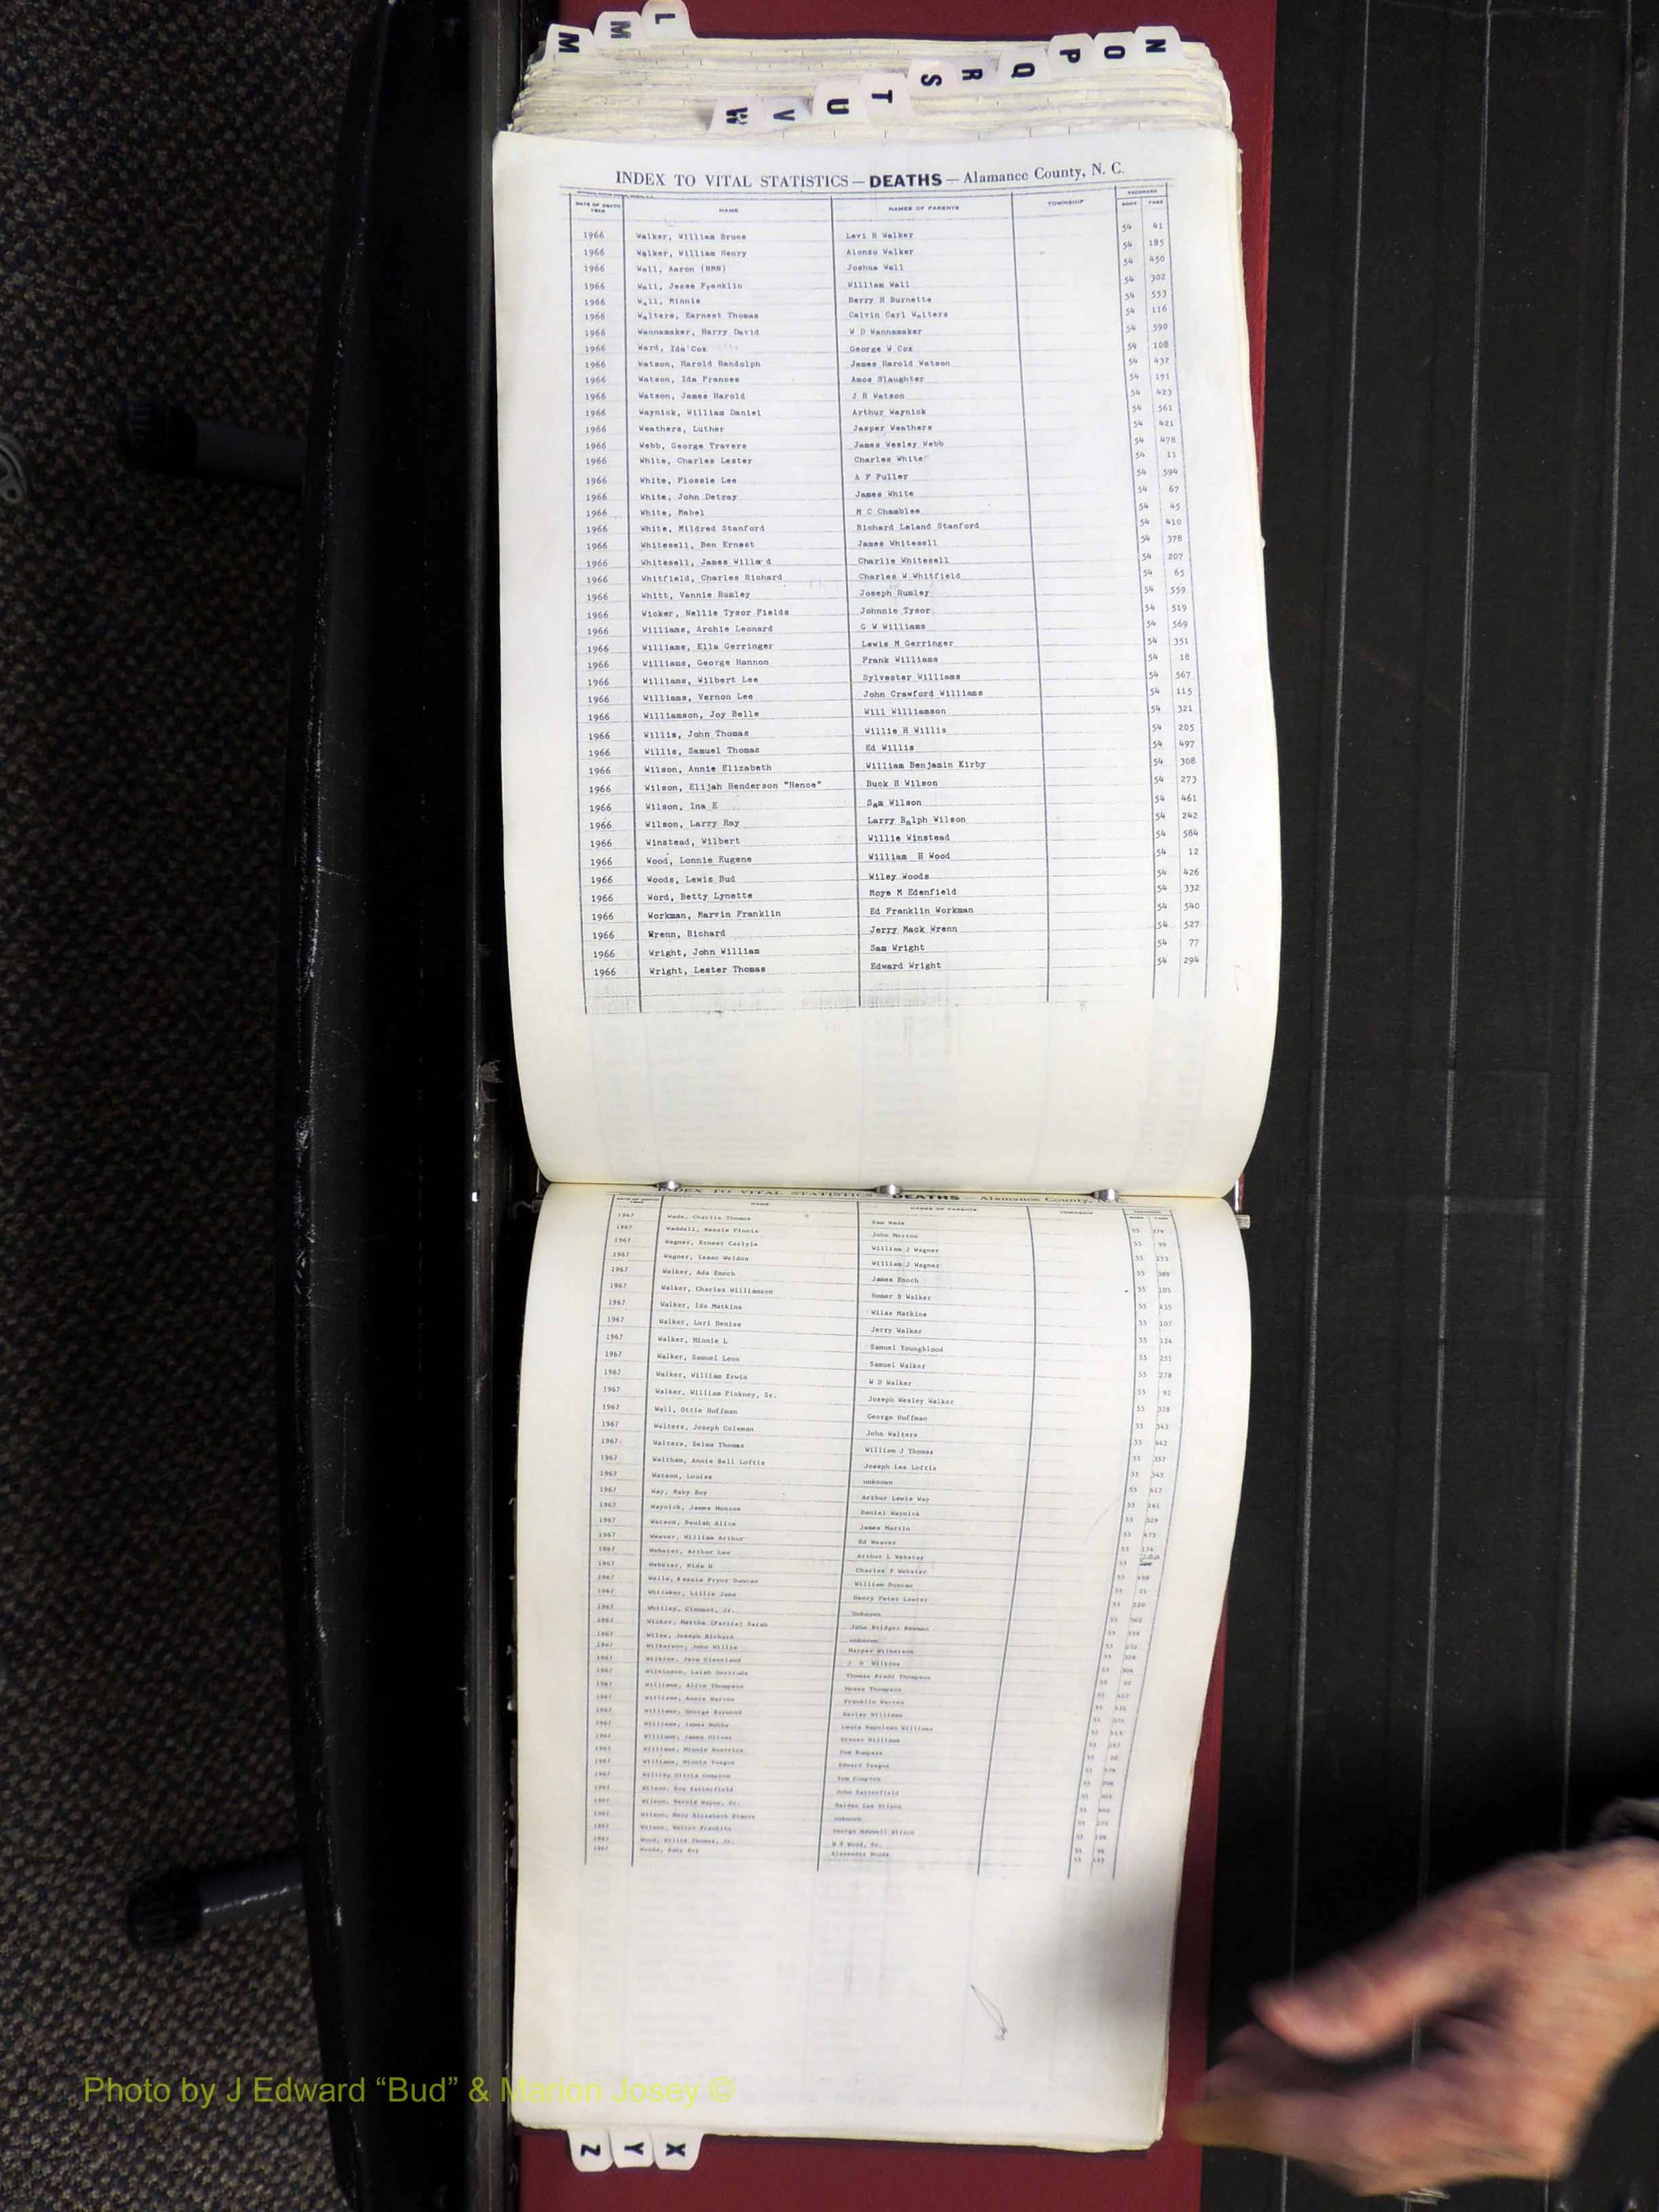 L
M
M
N
O
P
Q
R
S
T
U
V
W
INDEX TO VITAL STATISTICS — DEATHS — Alamance County, N. C.
DATE OF DEATH YEAR NAME NAMES OF PARENTS TOWNSHIP RECORDED BOOK PAGE
1966 Walker, William Bruce Levi R Walker 54 41
1966 Walker, William Henry Alonzo Walker 54 185
1966 Wall, Aaron (NMN) Joshua Wall 54 450
1966 Wall, Jesse Franklin William Wall 54 302
1966 Wall, Minnie Berry H Burnette 54 553
1966 Walters, Earnest Thomas Calvin Carl Walters 54 116
1966 Wannamaker, Harry David W D Wannamaker 54 590
1966 Ward, Ida Cox George W Cox 54 108
1966 Watson, Harold Randolph James Harold Watson 54 437
1966 Watson, Ida Frances Amos Slaughter 54 191
1966 Watson, James Harold J R Watson 54 423
1966 Waynick, William Daniel Arthur Waynick 54 561
1966 Weathers, Luther Jasper Weathers 54 421
1966 Webb, George Travers James Wesley Webb 54 478
1966 White, Charles Lester Charles White 54 11
1966 White, Flossie Lee A F Fuller 54 594
1966 White, John Detray James White 54 67
1966 White, Mabel M C Chamblee 54 45
1966 White, Mildred Stanford Richard Leland Stanford 54 410
1966 Whitesell, Ben Ernest James Whitesell 54 378
1966 Whitesell, James Willard Charlie Whitesell 54 207
1966 Whitfield, Charles Richard Charles W Whitfield 54 65
1966 Whitt, Vannie Rumley Joseph Rumley 54 559
1966 Wicker, Nellie Tysor Fields Johnnie Tysor 54 519
1966 Williams, Archie Leonard G W Williams 54 569
1966 Williams, Ella Gerringer Lewis M Gerringer 54 351
1966 Williams, George Hannon Frank Williams 54 18
1966 Williams, Wilbert Lee Sylvester Williams 54 567
1966 Williams, Vernon Lee John Crawford Williams 54 115
1966 Williamson, Joy Belle Will Williamson 54 321
1966 Willis, John Thomas Willie H Willis 54 205
1966 Willis, Samuel Thomas Ed Willis 54 497
1966 Wilson, Annie Elizabeth William Benjamin Kirby 54 308
1966 Wilson, Elijah Henderson "Hence" Buck H Wilson 54 273
1966 Wilson, Ina E Sam Wilson 54 461
1966 Wilson, Larry Ray Larry Ralph Wilson 54 242
1966 Winstead, Wilbert Willie Winstead 54 584
1966 Wood, Lonnie Eugene William H Wood 54 12
1966 Woods, Lewis Bud Wiley Woods 54 426
1966 Word, Betty Lynette Moye M Edenfield 54 332
1966 Workman, Marvin Franklin Ed Franklin Workman 54 540
1966 Wrenn, Richard Jerry Mack Wrenn 54 527
1966 Wright, John William Sam Wright 54 77
1966 Wright, Lester Thomas Edward Wright 54 294
INDEX TO VITAL STATISTICS DEATHS — Alamance County, N.C.
NAME NAMES OF PARENTS TOWNSHIP
1967 Wade, Charlie Thomas Sam Wade 55
1967 Waddell, Bessie John 55
1967 Wagner, Ernest Carlyle William J Wagner 55 253
1967 Wagner, Isaac Weldon William J Wagner 55 389
1967 Walker, Ada Enoch James Enoch 55 105
1967 Walker, Charles Williamson Homer B Walker 55 435
1967 Walker, Ida Matkins Wiles Matkins 55 107
1967 Walker, Lori Denise Jerry Walker 55 124
1967 Walker, Minnie L Samuel Youngblood 55 251
1967 Walker, Samuel Leon Samuel Walker 55 278
1967 Walker, William Erwin W D Walker 55 92
1967 Walker, William Pinkney, Sr. Joseph Wesley Walker 55 378
1967 Wall, Ottie Huffman George Huffman 55 343
1967 Walters, Joseph Coleman John Walters 55 442
1967 Walters, Selma Thomas William J Thomas 55 357
1967 Waltham, Annie Bell Loftis Joseph Lee Loftis 55 345
1967 Watson, Louise unknown 55 417
1967 Way, Baby Boy Arthur Lewis Way 55
1967 Waynick, James Monroe Daniel Waynick 55 329
1967 Watson, Beulah Alice James Martin 55 475
1967 Weaver, William Arthur Ed Weaver 55
1967 Webster, Arthur Lee Arthur L Webster 55
1967 Webster, Charles F Webster 55
1967 Wells, Bessie Pryor Duncan William Duncan 55 21
1967 Whitaker, Lillie Jane Henry Peter 55 220
1967 Whitley, Clement, Jr. Unknown 55
1967 Wicker, Martha (Pattie) Sarah John Bridger Newman 55
1967 Wiles, Joseph Richard unknown 55
1967 Wilkerson, John Willie Harper Wilkerson 55
1967 Wilkins, Cleveland Wilkins
1967 Wilkinson, Gertrude Thomas Thompson
1967 Williams, Alice Thompson Moses Thompson
1967 Williams, Annie Warren Franklin Warren
1967 Williams, George Raymond Williams
1967 Williams, James Lewis Napoleon Williams
1967 Williams, James Williams
1967 Williams, Minnie Beatrice Tom
1967 Williams, Minnie Teague Edward Teague
1967 Olivia Compton Tom Compton
1967 Wilson, Satterfield John Satterfield
1967 Wilson, Harold Wayne, Sr. Lee Wilson
1967 Wilson, Mary Elizabeth unknown
1967 Wilson, Walter Franklin George Wilson
1967 Wood, Willie Thomas, Jr. Wood, Sr.
1967 Woods, Baby Boy Alexander Woods
Photo by J Edward “Bud” & Marion Josey ©
Z
Y
X